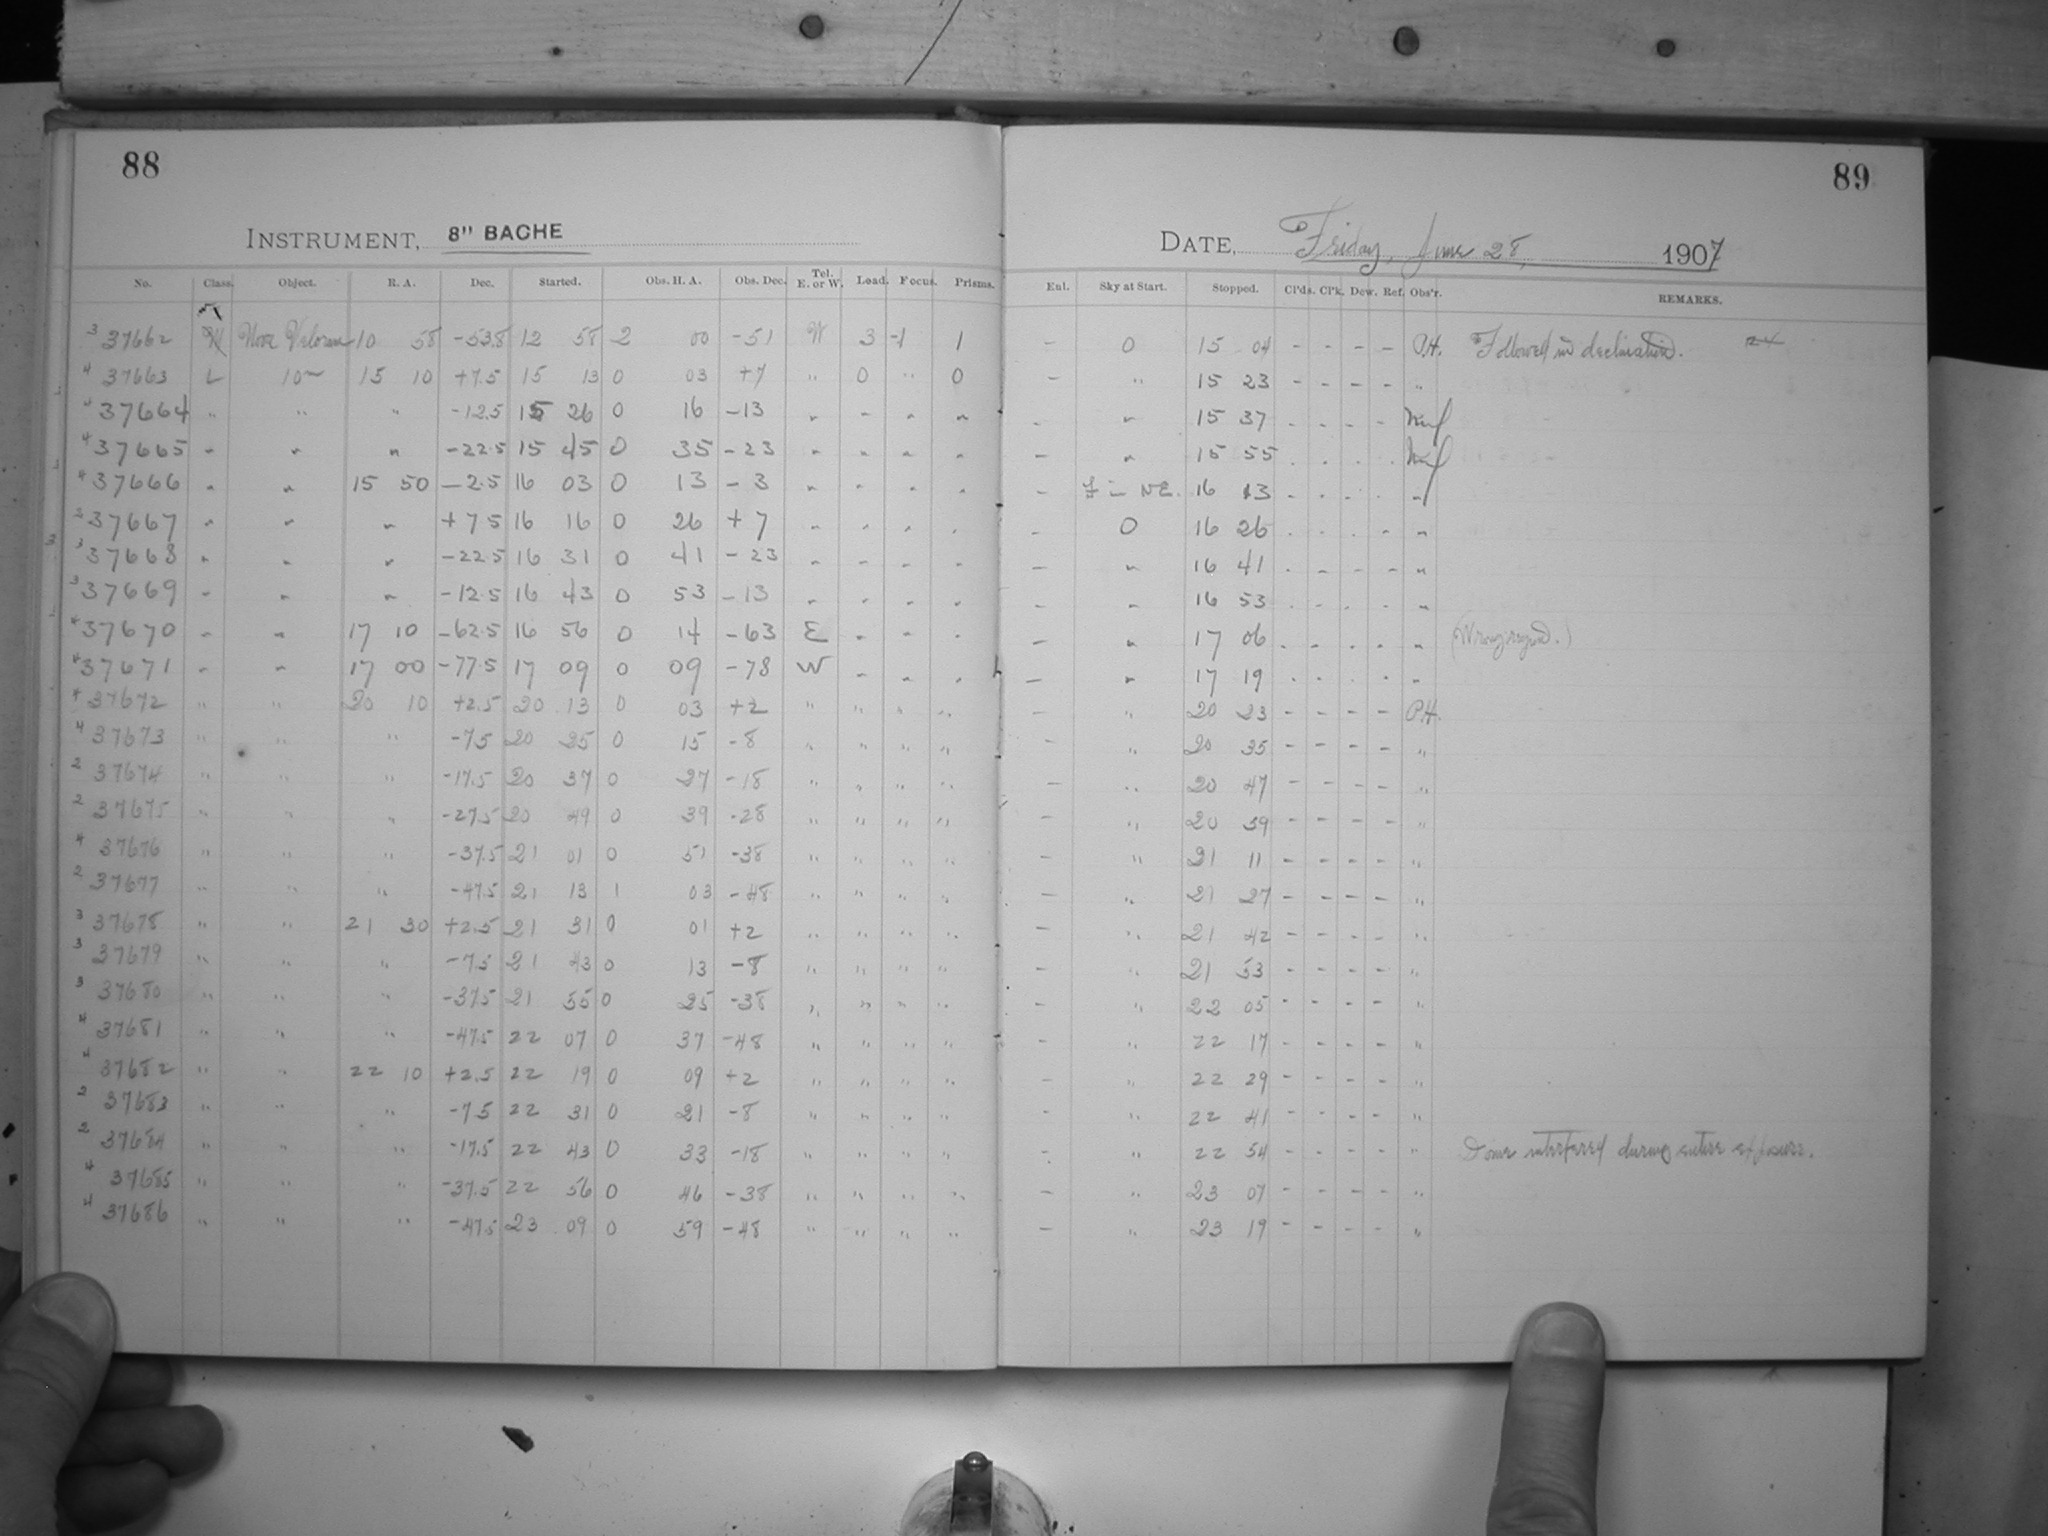 88
89
INSTRUMENT, 8" BACHE
DATE, Friday, June 28, 1907
No. Class. Object. R. A. Dec. Started. Obs. H. A. Obs. Dec. Tel. E. or W. Load. Focus. Prisms. Enl. Sky at Start. Stopped. Cl'ds. Cl'k. Dew. Ref. Obs'r. REMARKS.
3 37662 Nova Velorum 10 58 -53.8 12 58 2 00 -51 W 3 -1 1 - 0 15 04 - - - - P.H. Followed in declination.
4 37663 L 10m 15 10 +7.5 15 13 0 03 +7 " 0 " 0 - " 15 23 - - - - "
4 37664 " " " -12.5 15 26 0 16 -13 " - " " - " 15 37 - - - -
4 37665 " " " -22.5 15 45 0 35 -23 " " " " - " 15 55 - - - -
4 37666 " " 15 50 -2.5 16 03 0 13 -3 " " " " - NE. 16 13 - - - - "
3 37667 " " " +7.5 16 16 0 26 +7 " " " " - 0 16 26 - - - - "
3 37668 " " " -22.5 16 31 0 41 -23 " " " " - " 16 41 - - - - "
3 37669 " " " -12.5 16 43 0 53 -13 " " " " - " 16 53 - - - - "
4 37670 " " 17 10 -62.5 16 56 0 14 -63 E " " " - " 17 06 - - - - " (Wrong region.)
4 37671 " " 17 00 -77.5 17 09 0 09 -78 W " " " - " 17 19 - - - - "
4 37672 " " 20 10 +2.5 20 13 0 03 +2 " " " " - " 20 23 - - - - P.H.
4 37673 " " " -7.5 20 25 0 15 -8 " " " " - " 20 35 - - - - "
2 37674 " " " -17.5 20 37 0 27 -18 " " " " - " 20 47 - - - - "
2 37675 " " " -27.5 20 49 0 39 -28 " " " " - " 20 59 - - - - "
4 37676 " " " -37.5 21 01 0 51 -38 " " " " - " 21 11 - - - - "
2 37677 " " " -47.5 21 13 1 03 -48 " " " " - " 21 27 - - - - "
3 37678 " " 21 30 +2.5 21 31 0 01 +2 " " " " - " 21 42 - - - - "
3 37679 " " " -7.5 21 43 0 13 -8 " " " " - " 21 53 - - - - "
3 37680 " " " -37.5 21 55 0 25 -38 " " " " - " 22 05 - - - - "
4 37681 " " " -47.5 22 07 0 37 -48 " " " " - " 22 17 - - - - "
4 37682 " " 22 10 +2.5 22 19 0 09 +2 " " " " - " 22 29 - - - - "
2 37683 " " " -7.5 22 31 0 21 -8 " " " " - " 22 41 - - - - "
2 37684 " " " -17.5 22 43 0 33 -18 " " " " - " 22 54 - - - - " Dome interfered during entire exposure.
4 37685 " " " -37.5 22 56 0 46 -38 " " " " - " 23 07 - - - - "
4 37686 " " " -47.5 23 09 0 59 -48 " " " " - " 23 19 - - - - "